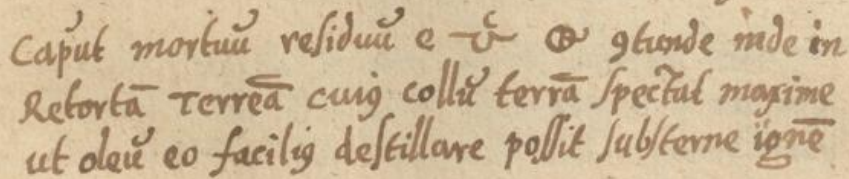 Caput mortuū residuū e 🜊 🜨 ꝯtunde inde in
Retortā Terreā cuiꝰ collū terrā spectat maxime
ut oleū eo faciliꝰ destillare possit substerne ignē